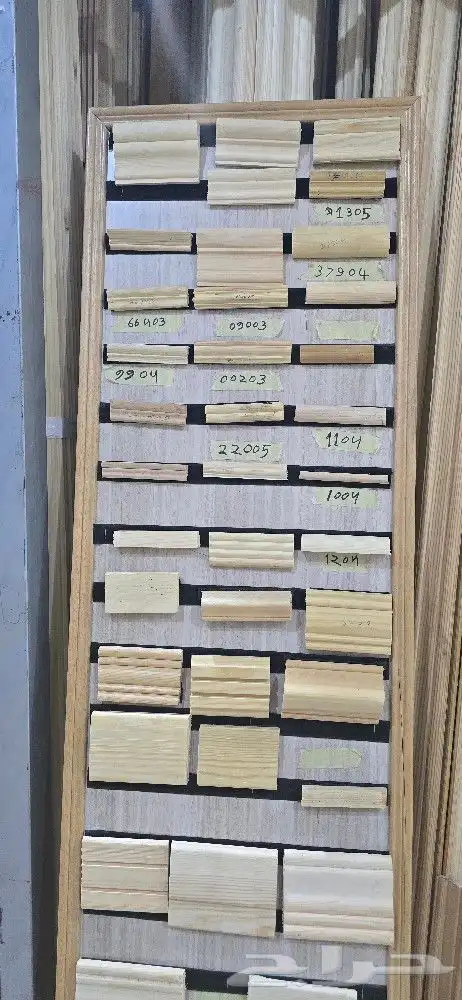 21305
37904
66403
09003
9904
00203
22005
1104
1004
1204
حراج